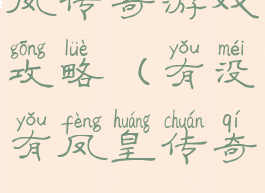 凤传奇游戏
gōng lüè yǒu méi
攻略（有没
yǒu fèng huáng chuán qí
有凤皇传奇